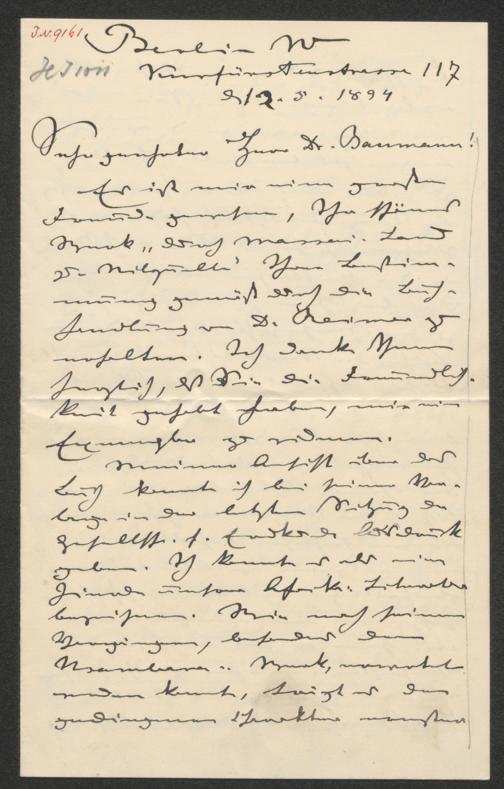 I.N.9161
Berlin W
Kurfürstenstrasse 117
d. 12. 5. 1894
Sehr geehrter Herr Dr. Baumann!
Es ist mir eine grosse
Freude gewesen, Ihr schönes
Werk „durch Massai-Land
zur Nilquelle" Ihrer Bestim-
mung gemäß durch die Buch-
handlung von D. Reimer zu
erhalten. Ich danke Ihnen
herzlich, daß Sie die Freundlich-
keit gehabt haben, mir ein
Exemplar zu widmen.
Meiner Ansicht über das
Buch konnte ich bei seiner Vor-
lage in der letzten Sitzung der
Gesellsch. f. Erdkunde Ausdruck
geben. Ich konnte es als eine
Zierde unserer Afrik. Literatur
begrüßen. Wie nach seinen
Vorgängern, besonders dem
Usambara-Werk, erwartet
werden konnte, trägt es den
gediegenen Charakter ernster